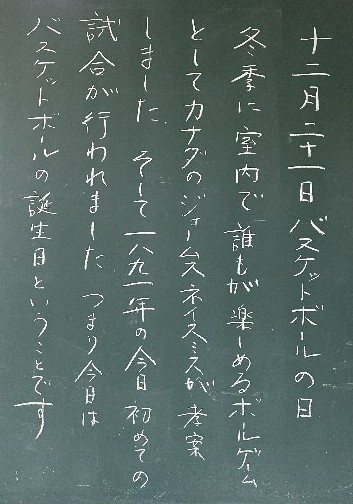 十二月二十一日バスケットボールの日
冬季に室内で誰もが楽しめるボールゲーム
としてカナダのジェームスネイスミスが考案
しました そして一八九一年の今日初めての
試合が行われました つまり今日は
バスケットボールの誕生日ということです